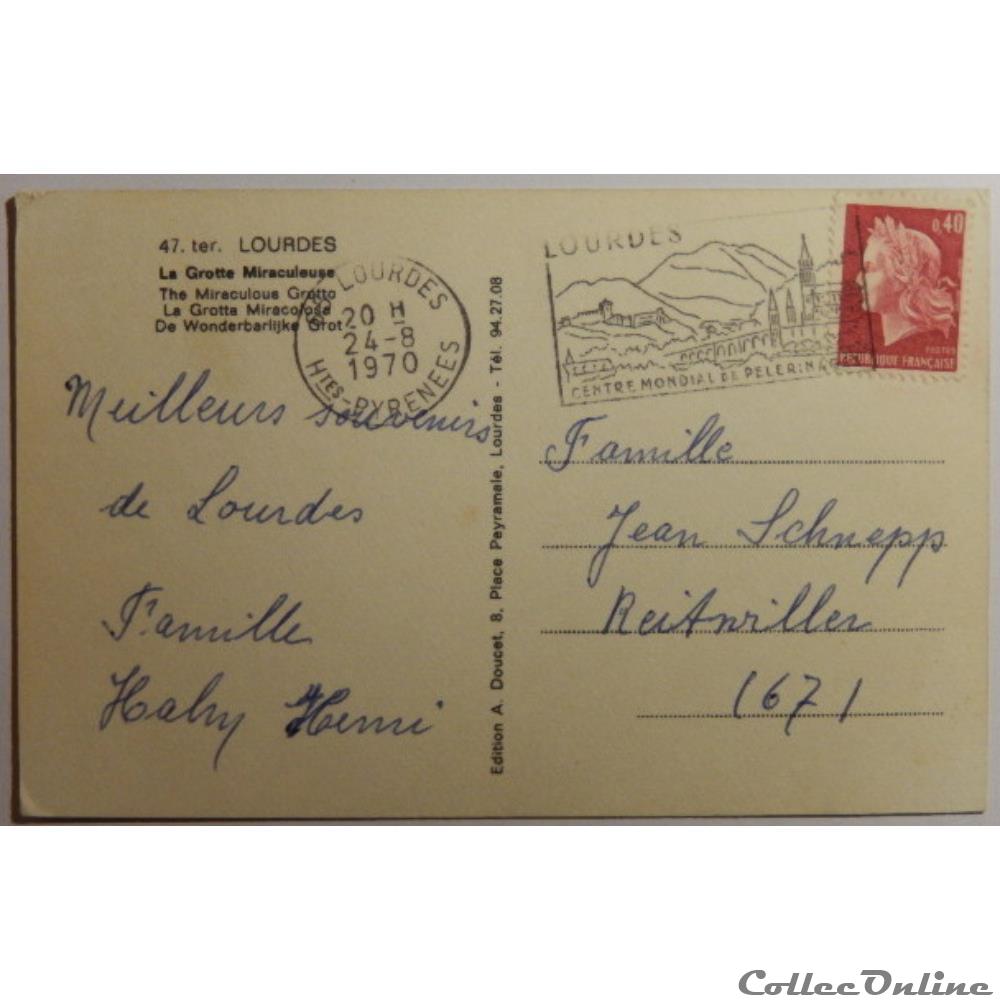 47. ter. LOURDES
La Grotte Miraculeuse
The Miraculous Grotto
La Grotta Miracolosa
De Wonderbarlijke Grot
LOURDES
20 H
24-8
1970
HTES-PYRENEES
Meilleurs souvenirs
de Lourdes
Famille
Halry Henri
Edition A. Doucet, 8, Place Peyramale, Lourdes - Tél. 94.27.08
LOURDES
CENTRE MONDIAL DE PELERINA
0,40
POSTES
REPUBLIQUE FRANÇAISE
Famille
Jean Schnepp
Reitwiller
(67)
CollecOnline